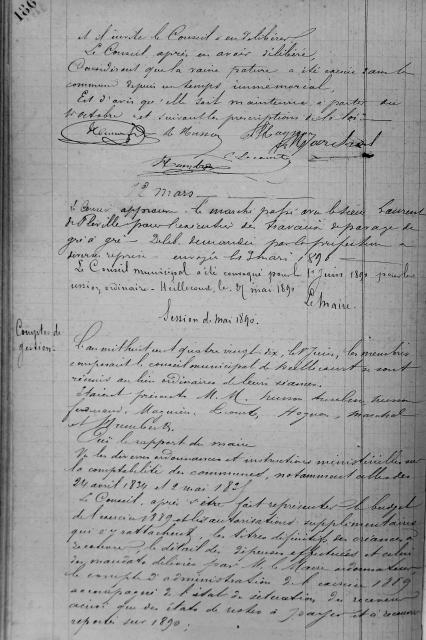 186
et invite le Conseil à en délibérer
Le Conseil, après en avoir délibéré,
Considérant que la vaine pature a été exercée dans la
commune depuis un temps immémorial,
Est d'avis qu'elle soit maintenue à partir du
octobre et suivant les prescriptions de la loi
Husson
Marchal
Humbert
12 mars
approuve le marché passé avec le sieur Laurent
de pour l'exécution des travaux de pavage de
gré à gré - Délib. demandée par la préfecture
1890
Le Conseil municipal a été convoqué pour le 1er Juin 1890 pour les
session ordinaire - le 27 mai 1890
Le Maire
Session de Mai 1890.
Comptes de
gestion
L'an mil huit cent quatre vingt dix, le Juin, les membres
composant le conseil municipal de se sont
réunis au lieu ordinaire de leurs séances.
étaient présents M. M. Husson Aurélien, Husson
Ferdinand, Marchal
et Humbert
Ouï le rapport du maire
Vu les diverses ordonnances et instructions ministérielles sur
la comptabilité des communes, notamment celles des
24 avril 1834 et 2 mai 1835
Le Conseil, après s'être fait représenter le budget
de l'exercice 1889 et les autorisations supplémentaires
qui s'y rattachent, les titres définitifs des créances à
recouvrer, le détail des dépenses effectuées et celui
des mandats délivrés par M. le Maire ordonnateur,
le compte d'administration de l'exercice 1889
accompagné de l'état de situation du receveur
ainsi que des états de restes à payer et à recouvrer
reportés sur 1890 ;